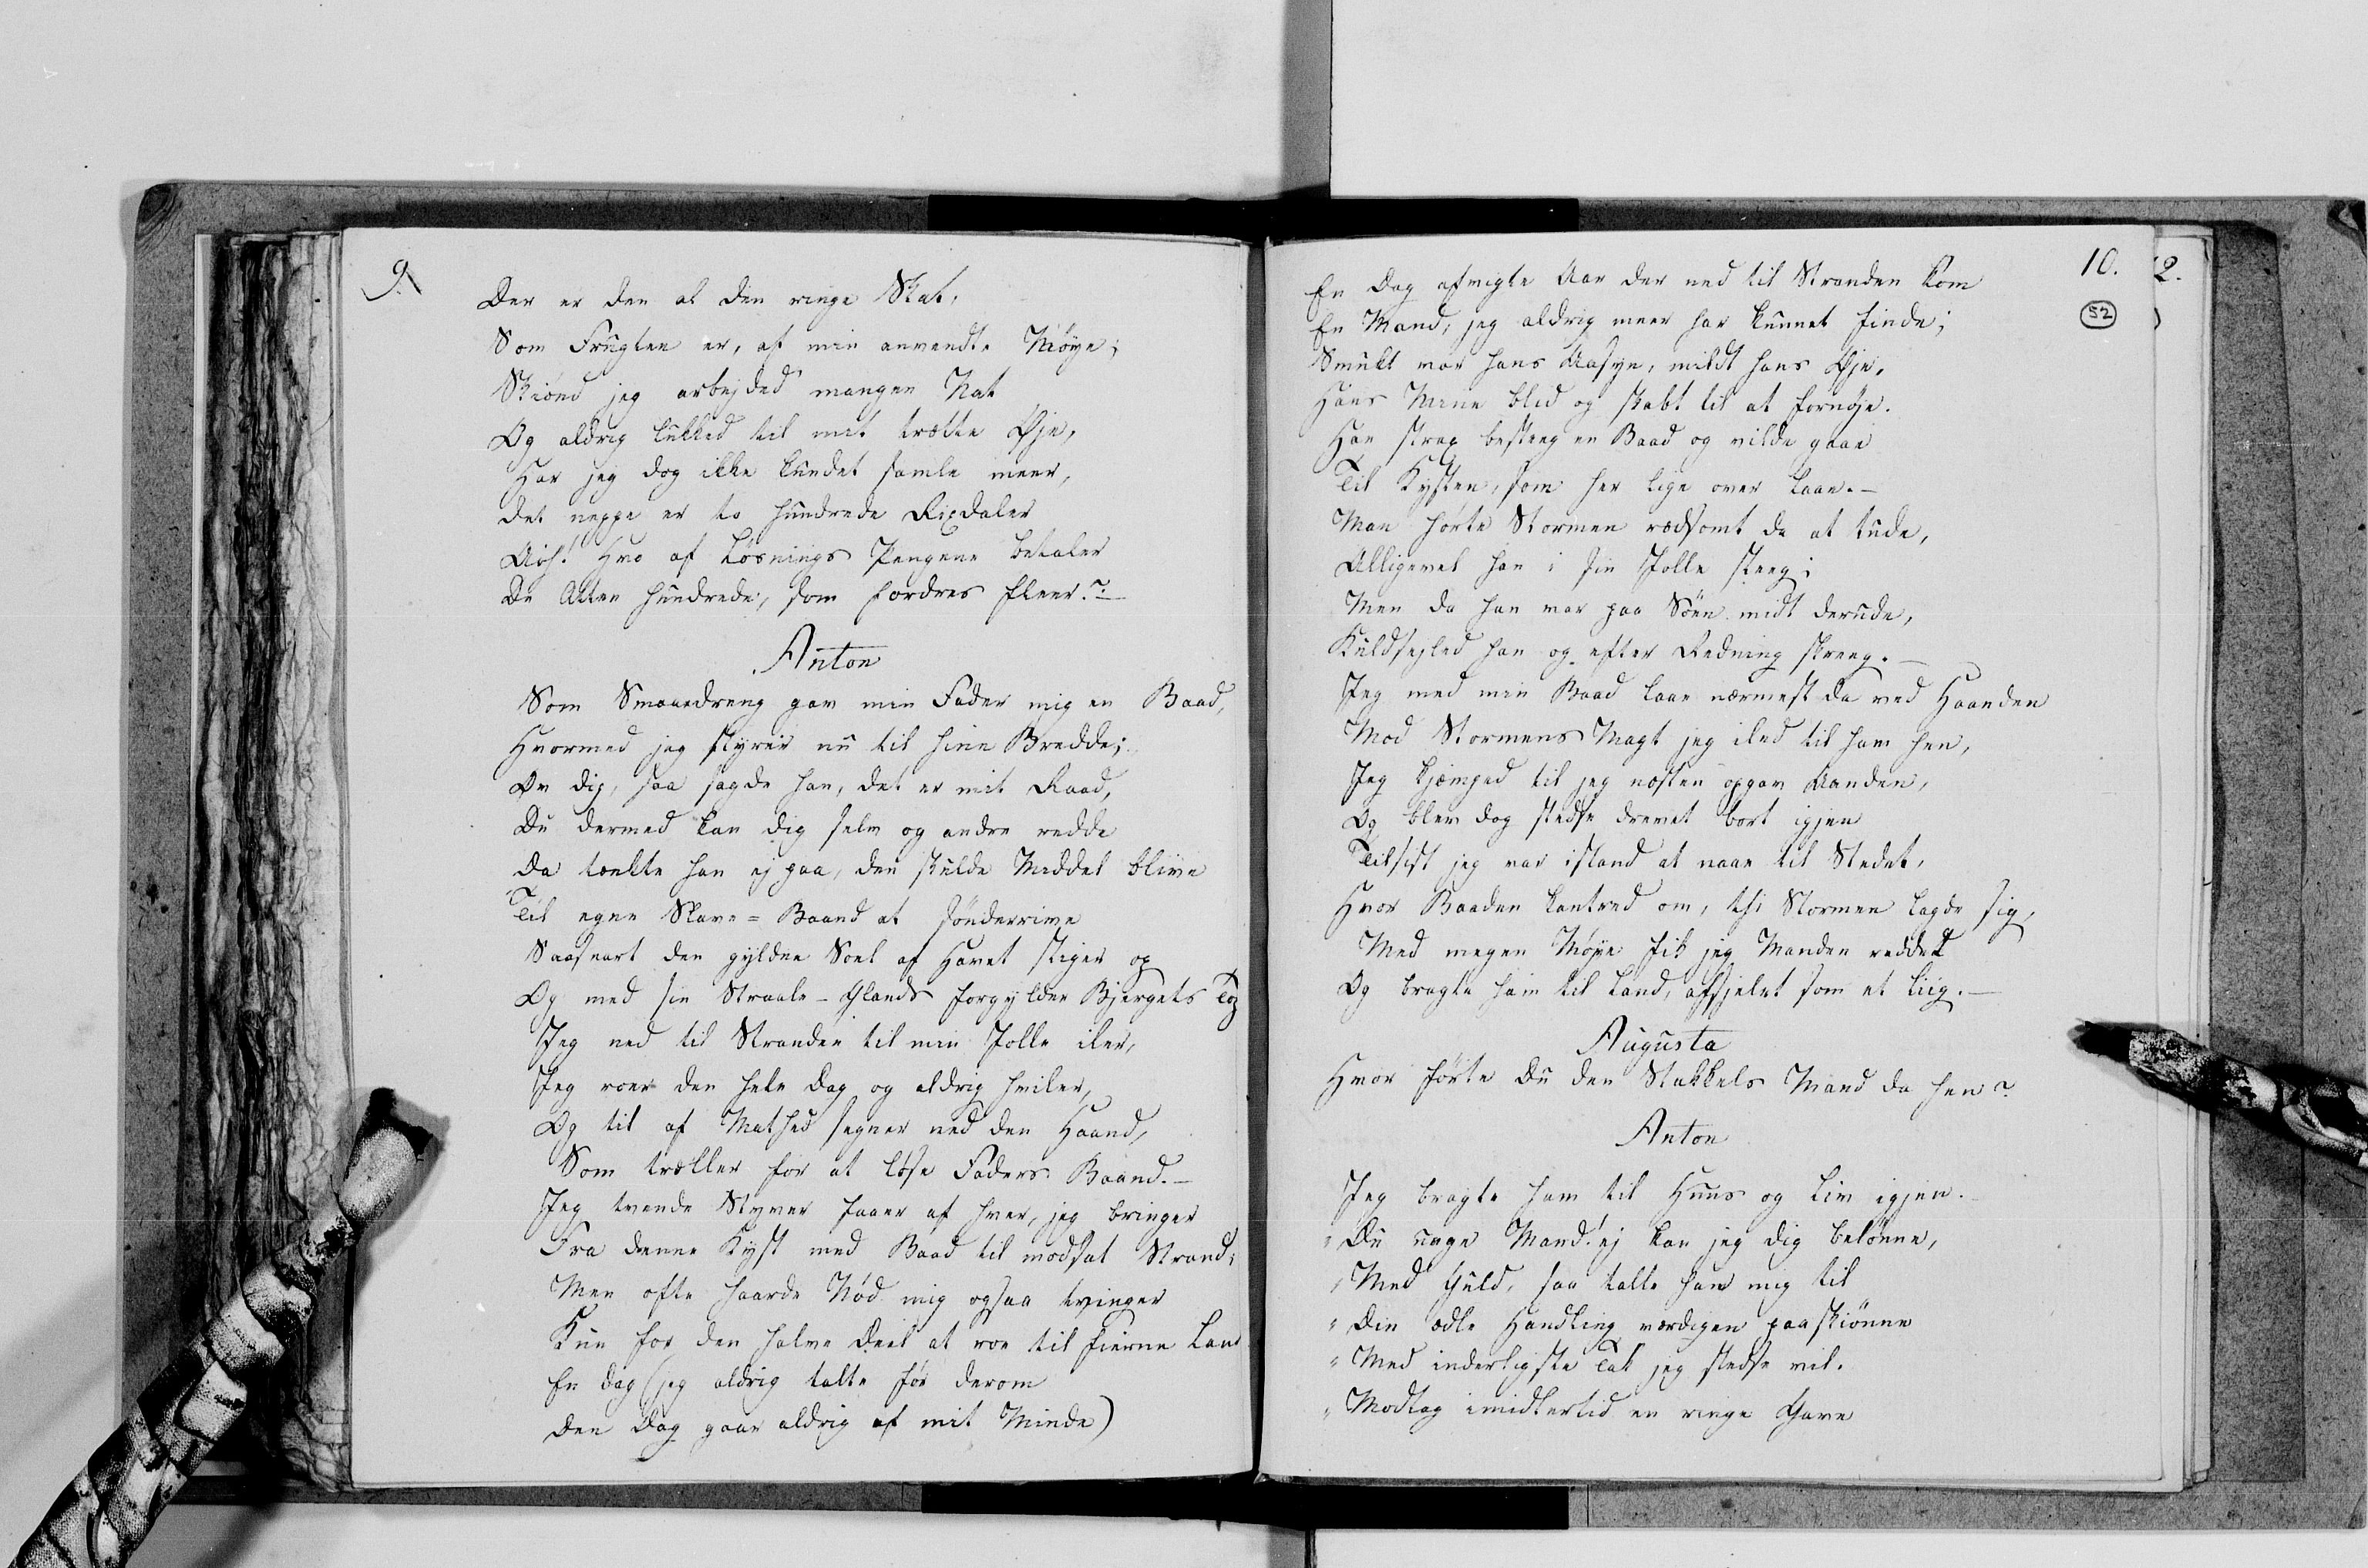 9.
Der er den al den ringe Skat,
Som Frugten er, af min anvendte Möye;
Skiönd jeg arbejded mangen Nat
Og aldrig lukked til mit trætte Øje,
Har jeg dog ikke kundet samle meer,
Det neppe er to hundrede Rixdaler
Ach! Hvo af Lösnings Pengene betaler
De Atten hundrede, som fordres fleer.?
Anton
Som Smaaedreng gav min Fader mig en Baad,
Hvormed jeg styrer nu til hiin Bredde;
Öv dig, saa sagde han, det er mit Raad,
Du dermed kan dig selv og andre redde
Da tænkte han ej paa, den skulde Middel blive
Til egne Slave=Baand at sönderrive
Saasnart den gyldne Soel af Havet stiger op
Og med sin Straale-Glands forgylder Bjergets Top
Jeg ned til Stranden til min Jolle iler,
Jeg roer den hele Dag og aldrig hviler,
Og tit af Mathed segner ned den Haand,
Som træller for at löse Faders Baand.-
Jeg tvende Styver faaer af hver, jeg bringer
Fra denne Kyst med Baad til modsat Strand;
Men ofte haarde Nød mig ogsaa tvinger
Kun for den halve Deel at roe til fierne Land
En Dag (jeg aldrig talte för derom
Den Dag gaar aldrig af mit Minde)
10.
2.
52
En Dag afvigte Aar der ned til Stranden kom
En Mand, jeg aldrig meer har kunnet finde;
Smukt var hans Aasyn, mildt hans Øje,
Hans Mine blid og skabt til at fornøje.
Han strax besteeg en Baad og vilde gaae
Til Kysten, som her lige over laae.-
Man hörte Stormen rædsomt da at tude,
Alligevel han i sin Jolle steeg;
Men da han var paa Söen midt derude,
Kuldsejled han og efter Redning skreeg.-
Jeg med min Baad laae nærmest da ved Haanden
Mod Stormens Magt jeg iled til ham hen,
Jeg kjæmped til jeg næsten opgav Aanden,
Og blev dog stedse drevet bort igjen
Tilsist jeg var istand at naae til Stedet,
Hvor Baaden kantred om, thi Stormen lagde sig,
Med megen Möye fik jeg Manden reddet
Og bragte ham til Land, afsjelet som et Liig.-
Augusta
Hvor förte Du den Stakkels Mand da hen?
Anton
Jeg bragte ham til Huus og Liv igjen.-
"Du unge Mand! ej kan jeg dig belönne,
"Med Guld, saa talte han mig til
"Din ædle Handling værdigen paaskiönne
"Med inderligste Tak jeg stedse vil.
"Modtag imidlertid en ringe Gave